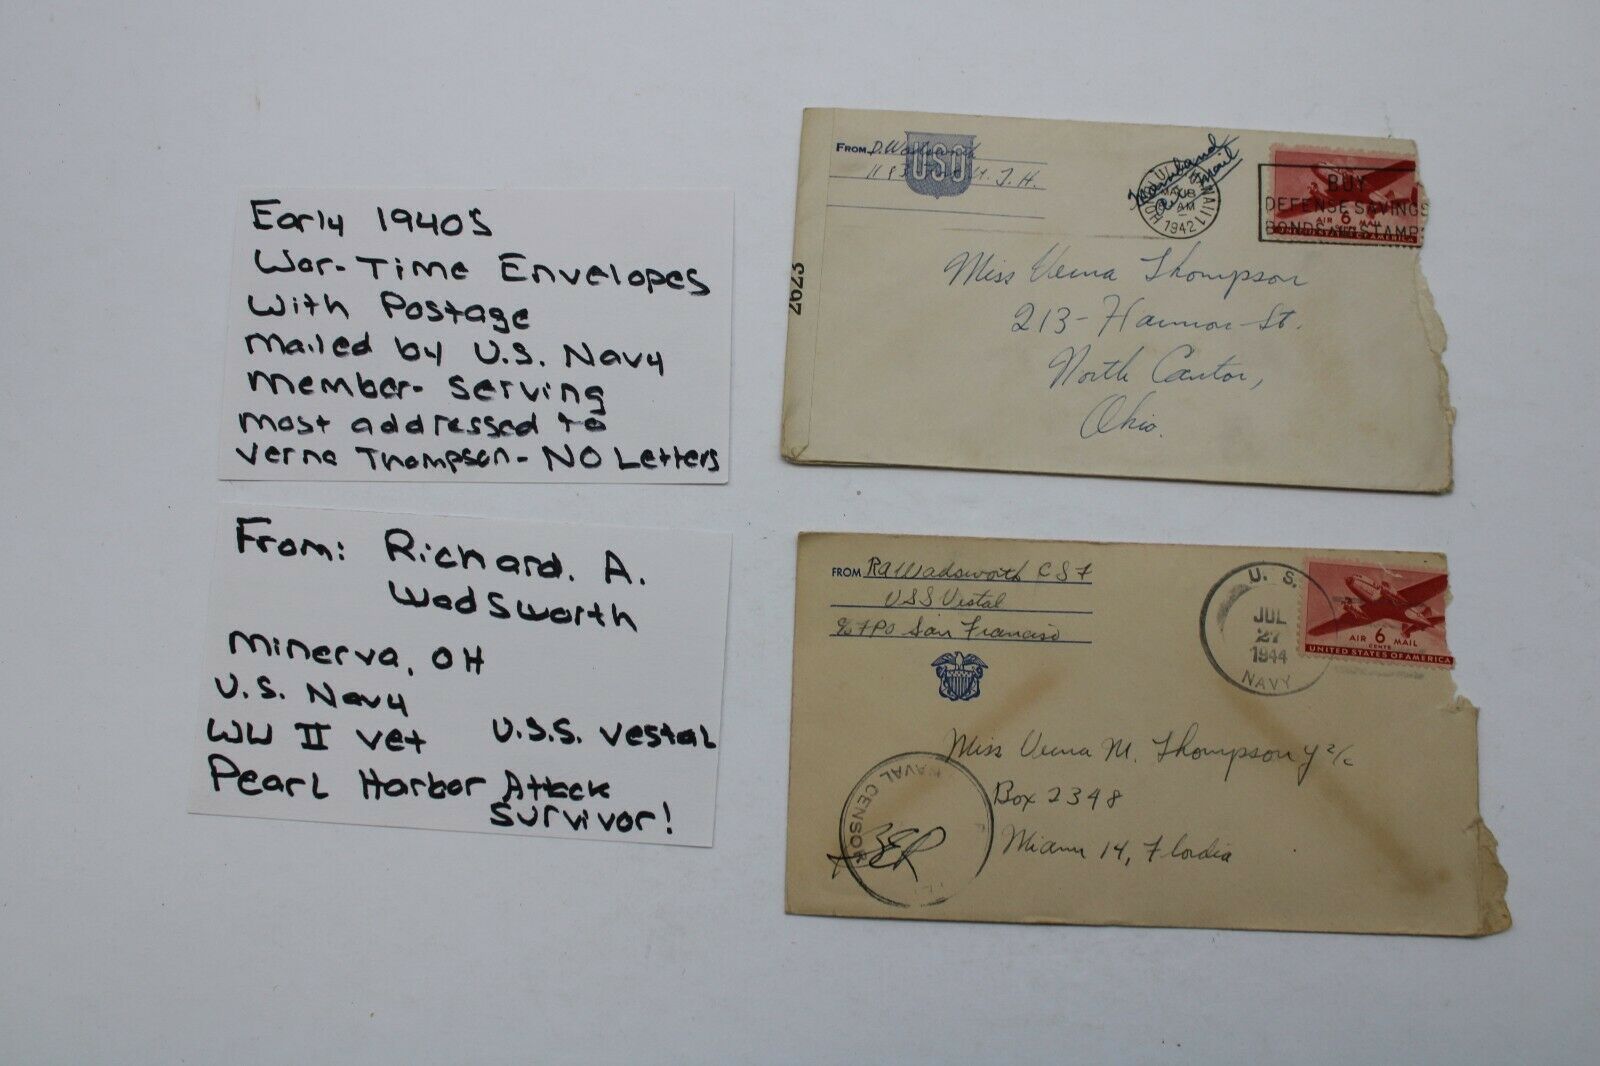 Early 1940s
War-Time Envelopes
with Postage
mailed by U.S. Navy
member- serving
most addressed to
Verna Thompson- NO Letters
From: Richard. A.
Wadsworth
Minerva, OH
U.S. Navy
WW II vet U.S.S. Vestal
Pearl Harbor Attack
Survivor!
FROM D. Wadsworth
T. H.
USO
Mainland
Air Mail
HONOLULU HAWAII
AM
1942
BUY
DEFENSE SAVINGS
BONDS AND STAMPS
AIR 6 MAIL
2623
Miss Verna Thompson
213- Harmon St.
North Canton,
Ohio.
FROM RA Wadsworth CSF
USS Vestal
c/o FPO San Francisco
U. S.
JUL
27
1944
NAVY
AIR 6 MAIL
CENTS
UNITED STATES OF AMERICA
Miss Verna M. Thompson Y 2/c
Box 2348
Miami 14, Flordia
NAVAL CENSOR